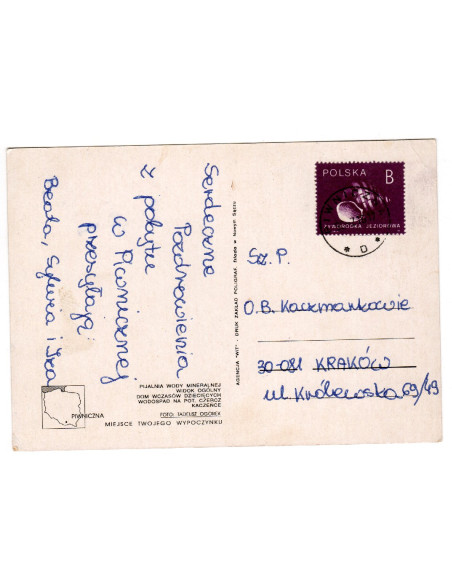 Serdeczne
Pozdrowienia
z pobytu
w Piwnicznej
przesyłają
Beata, Sylwia i Iza
PIJALNIA WODY MINERALNEJ
WIDOK OGÓLNY
DOM WCZASÓW DZIECIĘCYCH
WODOSPAD NA POT. CZERCZ
KACZEŃCE
FOTO: TADEUSZ OGÓREK
PIWNICZNA
MIEJSCE TWOJEGO WYPOCZYNKU
AGENCJA "WIT" - DRUK ZAKŁAD POLIGRAF. filia w Nowym Sączu
POLSKA B
ŻYWORÓDKA JEZIOROWA
D
Sz. P.
O.B. Kaczmankowie
30-081 KRAKÓW
ul. Królewska 69/49